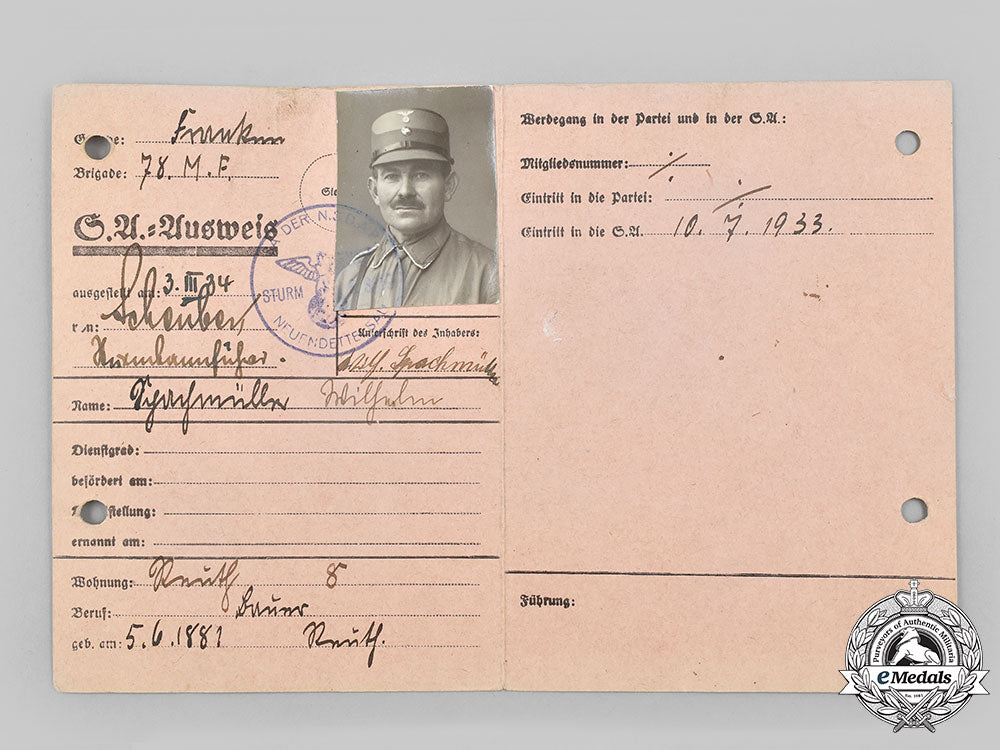 Franken
Brigade: 78. M.F.
S.A.-Ausweis
ausgestellt am: 3. III 34
Sturmbannführer.
Unterschrift des Inhabers:
Name: Wilhelm
Dienstgrad:
befördert am:
ernannt am:
Wohnung: Reuth 8
Beruf: Bauer
geb. am: 5.6.1881 Reuth.
DER N.S.D.
STURM
NEUENDETTELSAU
Werdegang in der Partei und in der S.A.:
Mitgliedsnummer: ./.
Eintritt in die Partei: ./.
Eintritt in die S.A. 10. 7. 1933.
Führung:
Purveyors of Authentic Militaria
eMedals